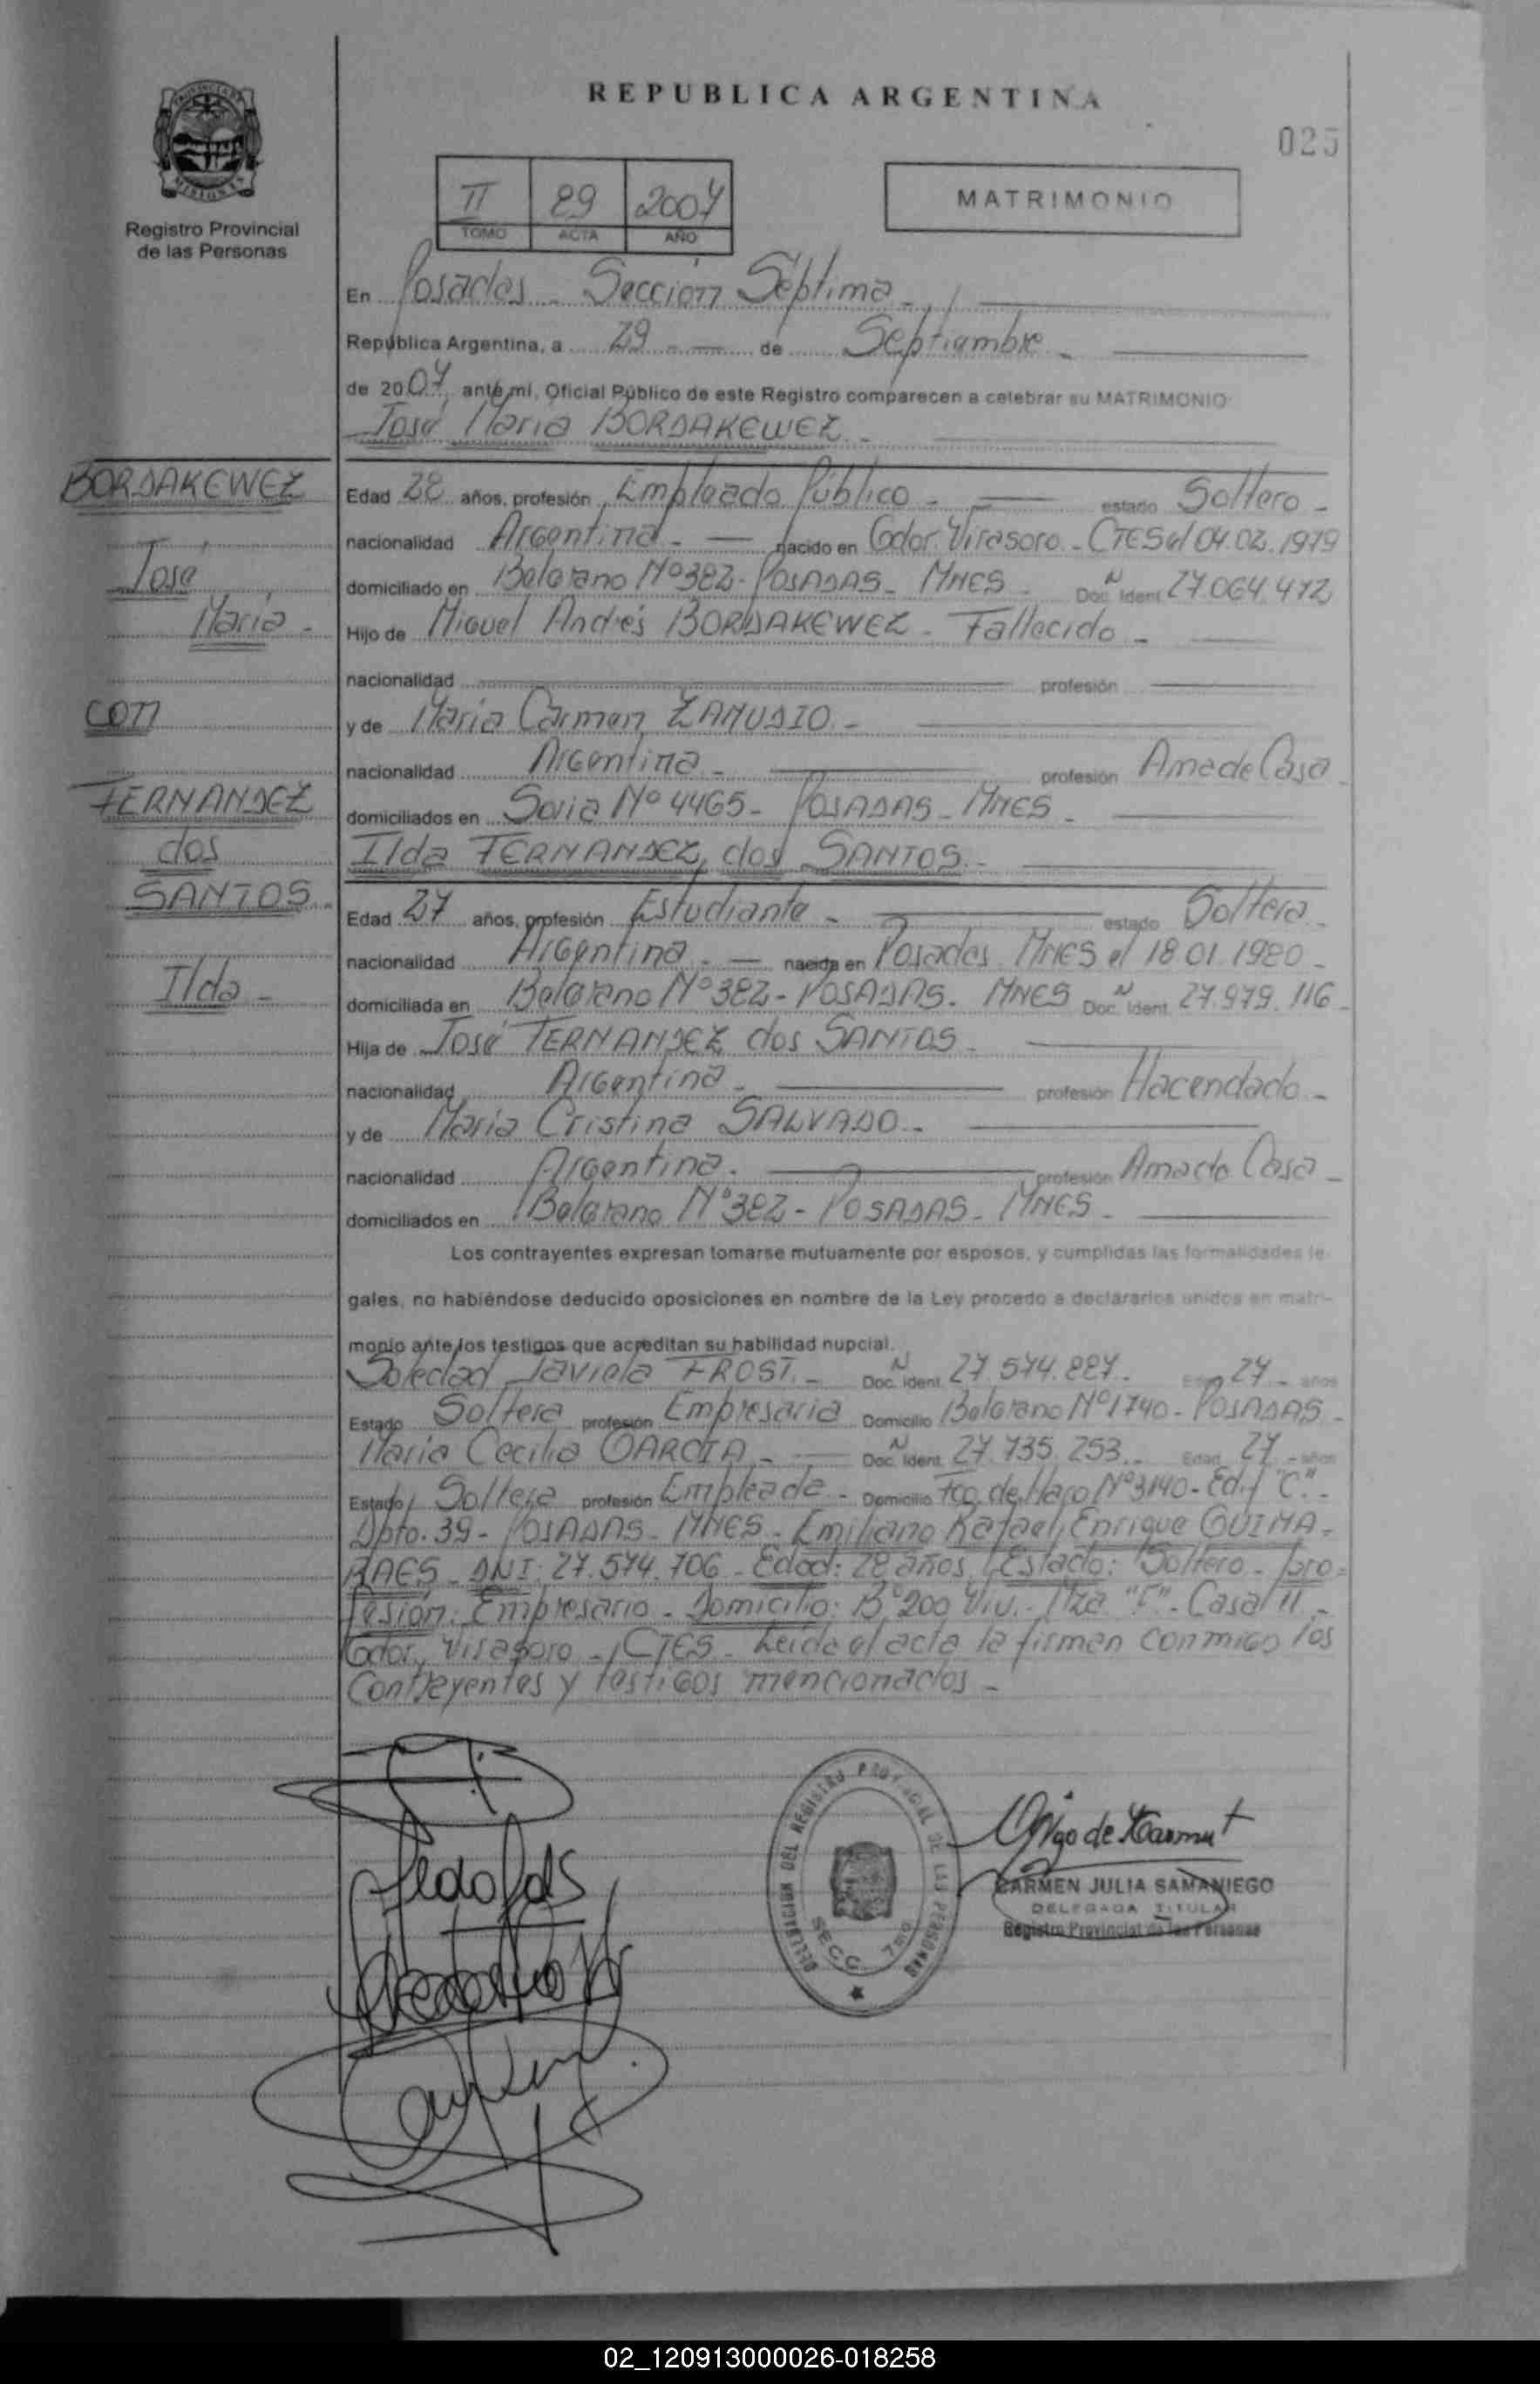 REPUBLICA ARGENTINA
025
II 89 2007
TOMO ACTA AÑO
MATRIMONIO
Registro Provincial
de las Personas
En Posadas - Sección Séptima -
República Argentina, a 29 - de Septiembre -
de 2007, ante mi, Oficial Público de este Registro comparecen a celebrar su MATRIMONIO
José María BORDAKEWEZ -
BORDAKEWEZ
José
María -
con
FERNANDEZ
dos
SANTOS
Ilda -
Edad 28 años, profesión Empleado Público - estado Soltero -
nacionalidad Argentina - nacido en Gdor. Virasoro - CTES el 04.02.1979
domiciliado en Belgrano Nº 382 - POSADAS - MNES - Doc. Ident. N 27.064.472
Hijo de Miguel Andrés BORDAKEWEZ - Fallecido -
nacionalidad profesión
y de María Carmen ZAMUDIO -
nacionalidad Argentina - profesión Ama de Casa -
domiciliados en Soria Nº 4465 - POSADAS - MNES -
Ilda FERNANDEZ dos SANTOS -
Edad 27 años, profesión Estudiante - estado Soltera -
nacionalidad Argentina - nacida en Posadas MNES el 18.01.1980 -
domiciliada en Belgrano Nº 382 - POSADAS - MNES Doc. Ident. N 27.979.116 -
Hija de José FERNANDEZ dos SANTOS -
nacionalidad Argentina - profesión Hacendado -
y de María Cristina SALVADO -
nacionalidad Argentina - profesión Ama de Casa -
domiciliados en Belgrano Nº 382 - POSADAS - MNES -
Los contrayentes expresan tomarse mutuamente por esposos, y cumplidas las formalidades le-
gales, no habiéndose deducido oposiciones en nombre de la Ley procedo a declararlos unidos en matri-
monio ante los testigos que acreditan su habilidad nupcial.
Soledad FROST - Doc. Ident. N 27.574.887 - Edad 27 - años
Estado Soltera profesión Empresaria Domicilio Belgrano Nº 1740 - POSADAS -
María Cecilia GARCIA - Doc. Ident. N 27.735.253 - Edad 27 - años
Estado Soltera profesión Empleada - Domicilio Fco. de Haro Nº 3140 - Edif "C" -
Dpto. 39 - POSADAS - MNES - Emiliano Rafael Enrique GUIMA-
RAES - DNI: 27.574.706 - Edad: 28 años - Estado: Soltero - pro-
fesión: Empresario - Domicilio: Bº 200 Viv. - Mza "F" - Casa 11 -
Gdor. Virasoro - CTES - Leída el acta la firman conmigo los
Contrayentes y testigos mencionados -
DELEGACION DEL REGISTRO PROVINCIAL DE LAS PERSONAS
SECC. 7ma
CARMEN JULIA SAMANIEGO
DELEGADA TITULAR
Registro Provincial de las Personas
02_120913000026-018258